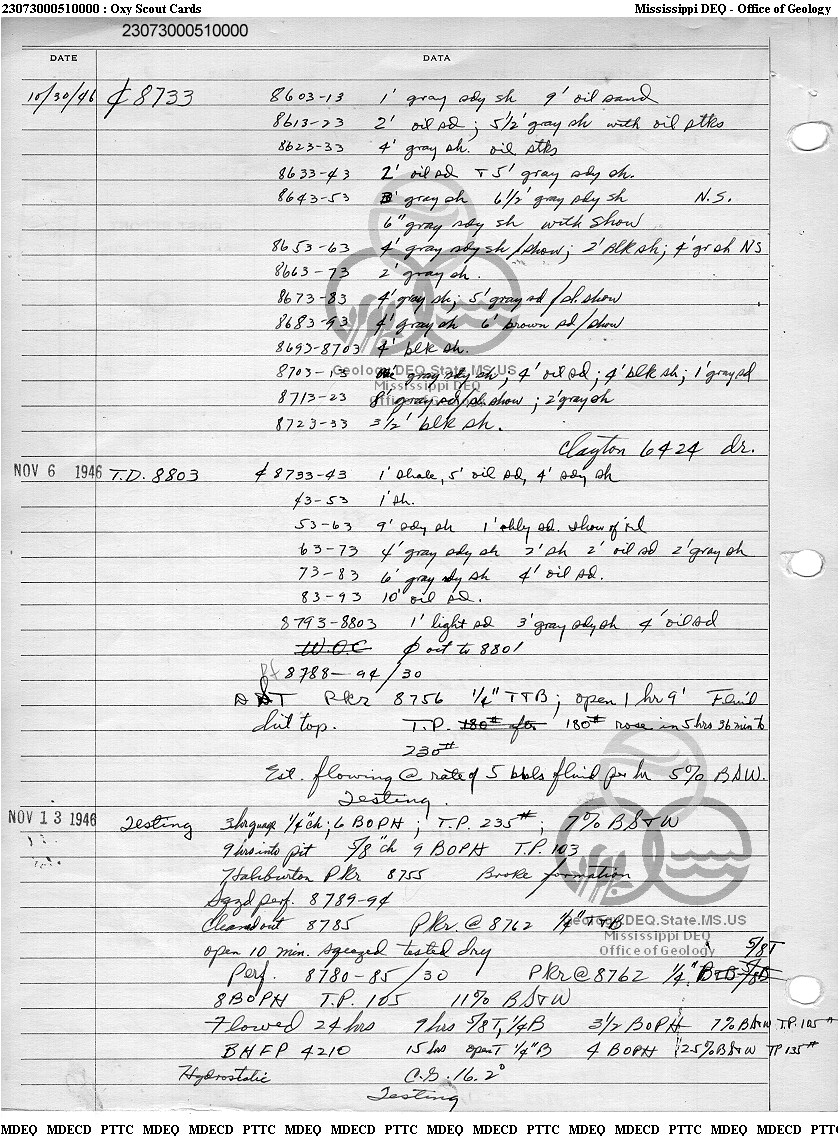 23073000510000 : Oxy Scout Cards Mississippi DEQ - Office of Geology
23073000510000
DATE DATA
10/30/46 ₵ 8733 8603-13 1' gray sdy sh 9' oil sand
8613-23 2' oil sd ; 5 1/2' gray sh with oil stks
8623-33 4' gray sh. oil stks
8633-43 2' oil sd + 5' gray sdy sh.
8643-53 3' gray sh 6 1/2' gray sdy sh N.S.
6" gray sdy sh with show
8653-63 4' gray sdy sh/show; 2' blk sh; 4' gr sh NS
8663-73 2' gray sh.
8673-83 4' gray sh; 5' gray sd/sl. show
8683-93 4' gray sh 6' brown sd/show
8693-8703 4' blk sh.
8703-13 gray sdy sh; 4' oil sd; 4' blk sh; 1' gray sd
Geology.DEQ.State.MS.US
Mississippi DEQ
8713-23 8' gray sd/sl. show ; 2' gray sh
8723-33 3 1/2' blk sh.
Clayton 6424 dr.
NOV 6 1946 T.D. 8803 ₵ 8733-43 1' shale, 5' oil sd, 4' sdy sh
43-53 1' sh.
53-63 9' sdy sh 1' shly sd. show of oil
63-73 4' gray sdy sh 2' sh 2' oil sd 2' gray sh
73-83 6' gray sdy sh 4' oil sd.
83-93 10' oil sd.
8793-8803 1' light sd 3' gray sdy sh 4' oil sd
W.O.C. to 8801
Pf 8788-94/30
DST Pkr 8756 1/4" TTB; open 1 hr 9' Fluid
hit top. T.P. 180# after 180# rose in 5 hrs 36 min to
230#
Est. flowing @ rate of 5 bbls fluid per hr 5% BSW.
Testing.
NOV 13 1946 Testing 3 hr guage 1/4" ch; 6 BOPH ; T.P. 235# ; 7% BS+W
9 hrs into pit 5/8" ch 9 BOPH T.P. 103
Haliburton Pkr 8755 Broke formation
Sqzd perf. 8789-94
Cleaned out 8785 Pkr. @ 8762 1/4" TTB
Geology.DEQ.State.MS.US
Mississippi DEQ
Office of Geology
open 10 min. squeezed tested dry 5/8 T
Perf. 8780-85/30 Pkr @ 8762 1/4" B
8 BOPH T.P. 105 11% BS+W
Flowed 24 hrs 9 hrs 5/8 T, 1/4 B 3 1/2 BOPH 7% BS+W T.P. 105#
BHFP 4210 15 hrs open T 1/4" B 4 BOPH 25% BS+W TP 135#
Hydrostatic C.G. 16.2°
Testing
MDEQ MDECD PTTC MDEQ MDECD PTTC MDEQ MDECD PTTC MDEQ MDECD PTTC MDEQ MDECD PTTC MDEQ MDECD PTTC